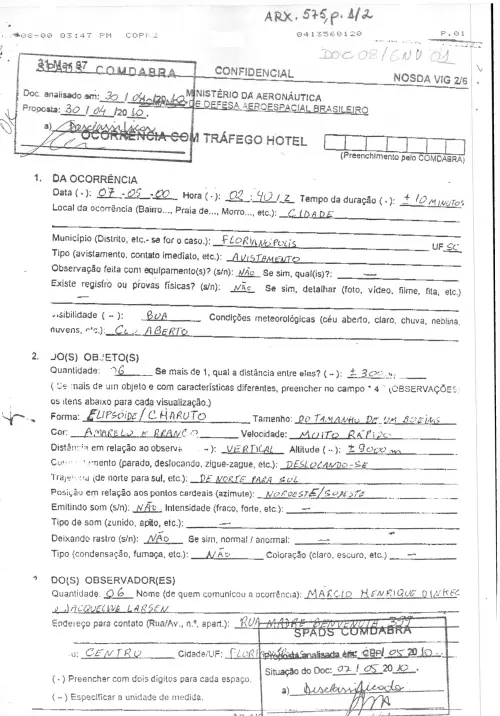 ARX. 575, p. 1/2
08-00 03:47 PM COPI 2 0413560120 P.01
DOC 08/ENV 01
31 Mar 97
COMDABRA CONFIDENCIAL NOSDA VIG 2/6
Doc. analisado em: 30 / 04 MINISTÉRIO DA AERONÁUTICA
DE DEFESA AEROESPACIAL BRASILEIRO
Proposta: 30 / 04 /20 10.
a) Desclassificar
OK
OCORRÊNCIA COM TRÁFEGO HOTEL
(Preenchimento pelo COMDABRA)
1. DA OCORRÊNCIA
Data ( - ): 07 - 05 - 00 Hora ( - ): 02 : 40 / Z Tempo da duração ( - ): ± 10 MINUTOS
Local da ocorrência (Bairro..., Praia de..., Morro..., etc.): CIDADE
Município (Distrito, etc.- se for o caso.): FLORIANÓPOLIS UF SC
Tipo (avistamento, contato imediato, etc.): AVISTAMENTO
Observação feita com equipamento(s)? (s/n): NÃO Se sim, qual(is)?: —
Existe registro ou provas físicas? (s/n): NÃO Se sim, detalhar (foto, vídeo, filme, fita, etc.)
—
visibilidade ( ~ ): BOA Condições meteorológicas (céu aberto, claro, chuva, neblina,
nuvens, etc.): CÉU ABERTO
2. DO(S) OBJETO(S)
Quantidade: 06 Se mais de 1, qual a distância entre eles? ( ~ ): ± 300 m
( Se mais de um objeto e com características diferentes, preencher no campo " 4 " (OBSERVAÇÕES)
os itens abaixo para cada visualização.)
Forma: ELIPSÓIDE / CHARUTO Tamenho: DO TAMANHO DE UM BOEING
Cor: AMARELO E BRANCO Velocidade: MUITO RÁPIDO
Distância em relação ao observ ~ ): VERTICAL Altitude ( ~ ): ± 9000 m
mento (parado, deslocando, zigue-zague, etc.): DESLOCANDO-SE
Trajetória (de norte para sul, etc.): DE NORTE PARA SUL
Posição em relação aos pontos cardeais (azimute): NOROESTE/SUDESTE
Emitindo som (s/n): NÃO Intensidade (fraco, forte, etc.): —
Tipo de som (zunido, apito, etc.): —
Deixando rastro (s/n): NÃO Se sim, normal / anormal: —
Tipo (condensação, fumaça, etc.): NÃO Coloração (claro, escuro, etc.) —
DO(S) OBSERVADOR(ES)
Quantidade: 06 Nome (de quem comunicou a ocorrência): MÁRCIO HENRIQUE
JACQUELINE LARSEN
Endereço para contato (Rua/Av., n.º, apart.): RUA MADRE BENVENUTA 399
SPADS COMDABRA
o: CENTRO Cidade/UF: Proposta analisada em: 05 20 10.
Situação do Doc: 07 / 05 20 10.
( - ) Preencher com dois dígitos para cada espaço. a) Desclassificado
( ~ ) Especificar a unidade de medida.